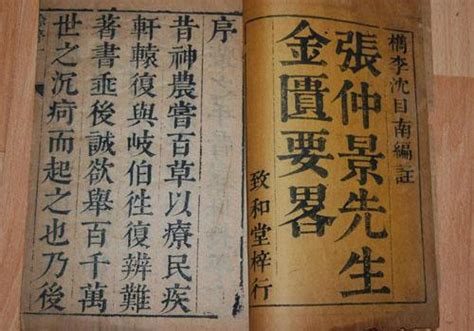 檇李沈目南編註
張仲景先生
金匱要畧
致和堂梓行
序
昔神農嘗百草以療民疾
軒轅復與岐伯徃復辨難
著書埀後誠欲舉百千萬
世之沉疴而起之也乃後